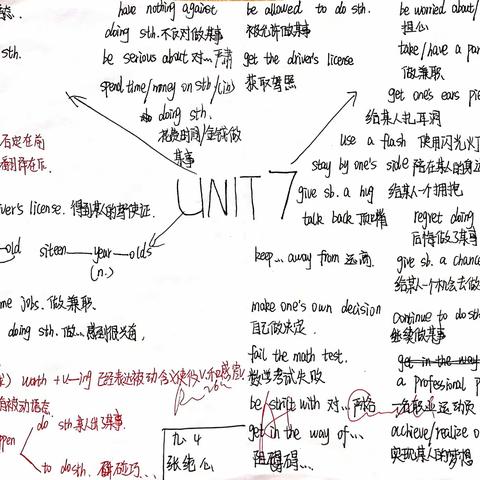 have nothing against
doing sth. 不反对做某事
be serious about 对…严肃
spend time/money on sth/(in)
doing sth.
花费时间/金钱做
某事
be allowed to do sth.
被允许做某事
get the driver's license
获取驾照
be worried about/
担心
take/have a par
做兼职
get one's ears pie
给某人扎耳洞
use a flash 使用闪光灯
stay by one's side 陪在某人的身边
give sb. a hug 给某人一个拥抱
talk back 顶嘴
regret doing
后悔做了某事
sth.
否定在前
翻译在后
UNIT 7
ver's license. 得到某人的驾驶证.
old siteen—year—olds
(n.)
me jobs. 做兼职.
doing sth. 做…感到很兴奋.
keep... away from 远离
give sb. a chance
给某人一个机会去做
make one's own decision
自己做决定.
continue to do sth
继续做某事
fail the math test.
数学考试失败
get in the way
a professional p
be strict with 对…严格
一名职业运动员
get in the way of...
阻碍…
achieve/realize o
实现某人的梦想
worth +v—ing 已经表达被动含义
有被动语态
ppen
do sth. 某人的某事.
to do sth. 碰巧…
九.4